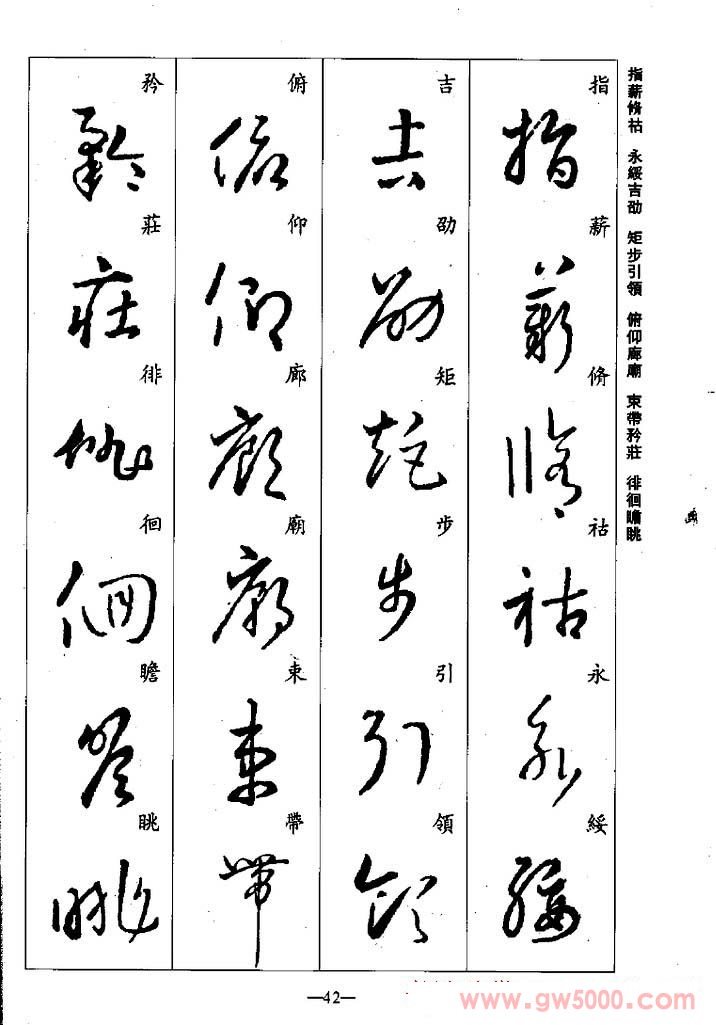 指薪脩祜 永綏吉劭 矩步引領 俯仰廊廟 束帶矜莊 徘徊瞻眺
指薪脩祜永綏
吉劭矩步引領
俯仰廊廟束帶
矜莊徘徊瞻眺
—42—
www.gw5000.com